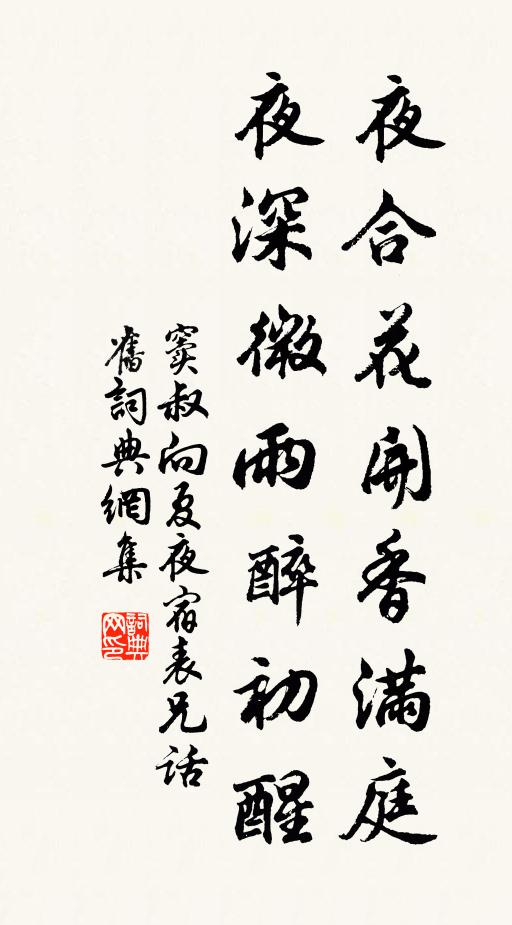 夜合花開香滿庭
夜深微雨醉初醒
竇叔向夏夜宿表兄話
舊詞典網集
詞典
网印